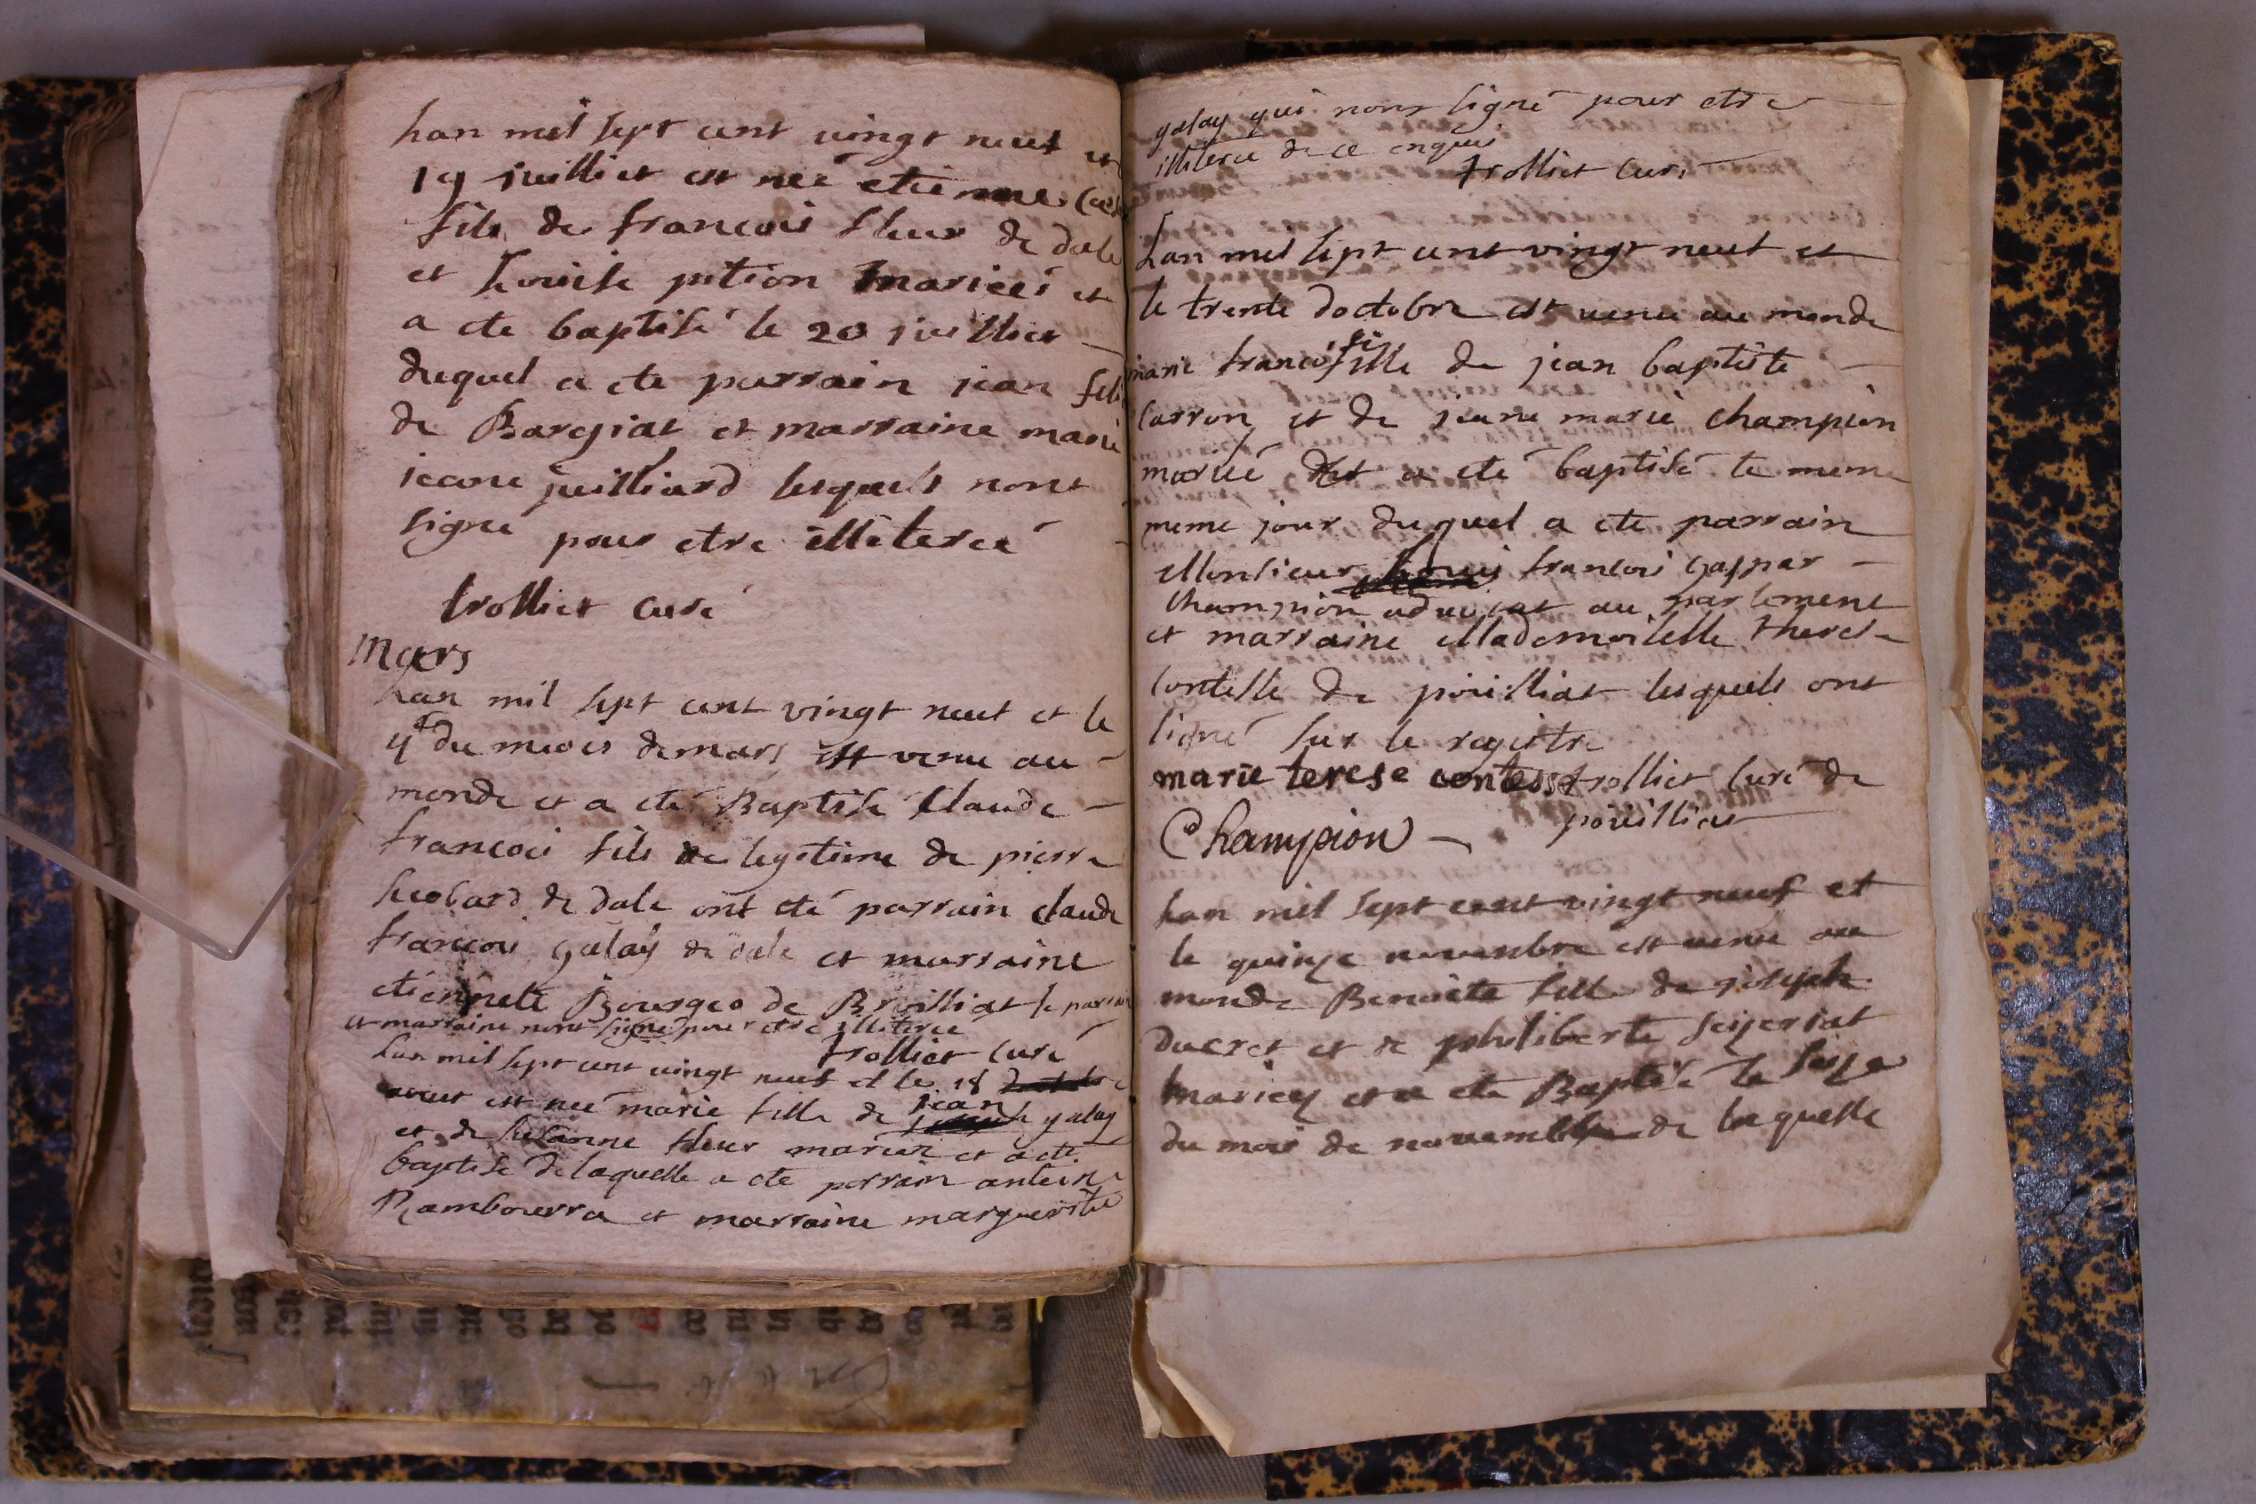 lan mil sept cent vingt neuf et
19 juilliet est neé etienne
fils de francois fleur de dale
et Louise pition mariees et
a ete baptisé le 20 juilliet
duquel a ete parrain jean feli
de Baregiat et marraine marie
jeanne juilliard lesquels nont
signé pour etre illiteréé
trolliet curé
Mars
lan mil sept cent vingt neuf et le
4e du meois de mars est venu au
monde et a eté Baptisé Claude
francois fils legitime de pierre
de dale ont eté parrain claude
francois galay de dale et marraine
etiennete Bourgeo de Brailliat le parrain
et marraine nont signé pour etre illiteree
trolliet curé
Lan mil sept cent vingt neuf et le 18
aout est neé marie fille de jean galay
et de susanne fleur mariez et a ete
baptisé de laquelle a ete parrain antoine
Rambourra et marraine marguerite
galay qui nont signé pour etre
illiteree de ce enquis
trolliet curé
Lan mil sept cent vingt neuf et
le trente doctobre est venu au monde
marie francoise fille de jean baptiste
Carron et de jeane marie champion
mariéé et a eté baptisé le meme
meme jour duquel a ete parrain
Monsieur Louis francois Gaspar
champion advocat au parlement
et marraine Mademoiselle therese
contesse de poüilliat lesquels ont
signé sur le registre
marie terese contesse trolliet Curé de
poüilliat
Champion
Lan mil sept cent vingt neuf et
le quinze novembre est venu au
monde Benoite fille de joseph
ducret et de philiberte seijeriat
mariez et a ete Baptisé le seze
du mois de novembre de laquelle